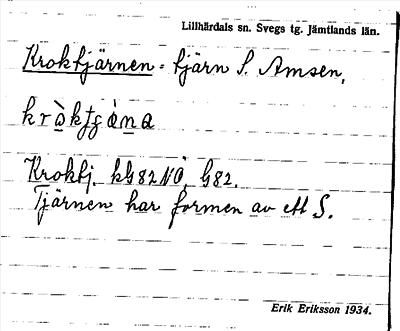 Lillhärdals sn. Svegs tg. Jämtlands län.
Kroktjärnen = tjärn S. Amsen,
Kroktj. kG82NO, G82.
Tjärnen har formen av ett S.
Erik Eriksson 1934.